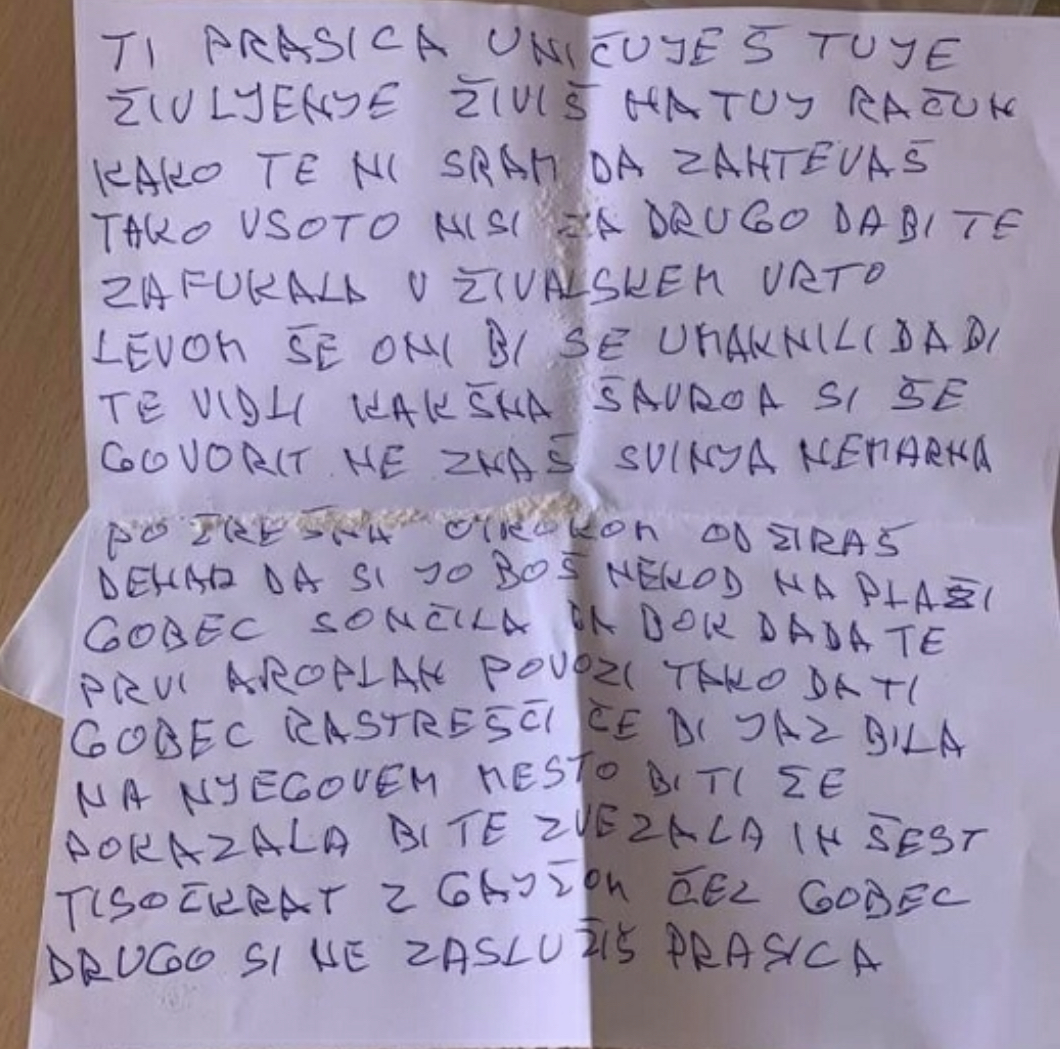 TI PRASICA UNIČUJEŠ TUJE
ŽIVLJENJE ŽIVIŠ NA TUJ RAČUN
KAKO TE NI SRAM DA ZAHTEVAŠ
TAKO VSOTO NISI ZA DRUGO DABI TE
ZAFUKALA V ŽIVALSKEM VRTO
LEVOM ŠE ONI BI SE UMAKNILI DA BI
TE VIDLI KAKŠNA ŠAVROA SI ŠE
GOVORIT NE ZNAŠ SVINJA NEMARNA
POŽREŠNA OTROKOM ODŽIRAŠ
DENAR DA SI JO BOŠ NEKOD NA PLAŽI
GOBEC SONČILA DA BOK DADA TE
PRVI AROPLAN POVOZI TAKO DA TI
GOBEC RASTREŠČI ČE BI JAZ BILA
NA NJEGOVEM MESTO BI TI ŽE
POKAZALA BI TE ZVEZALA IN ŠEST
TISOČKRAT Z GAJŽOM ČEZ GOBEC
DRUGO SI NE ZASLUŽIŠ PRASICA